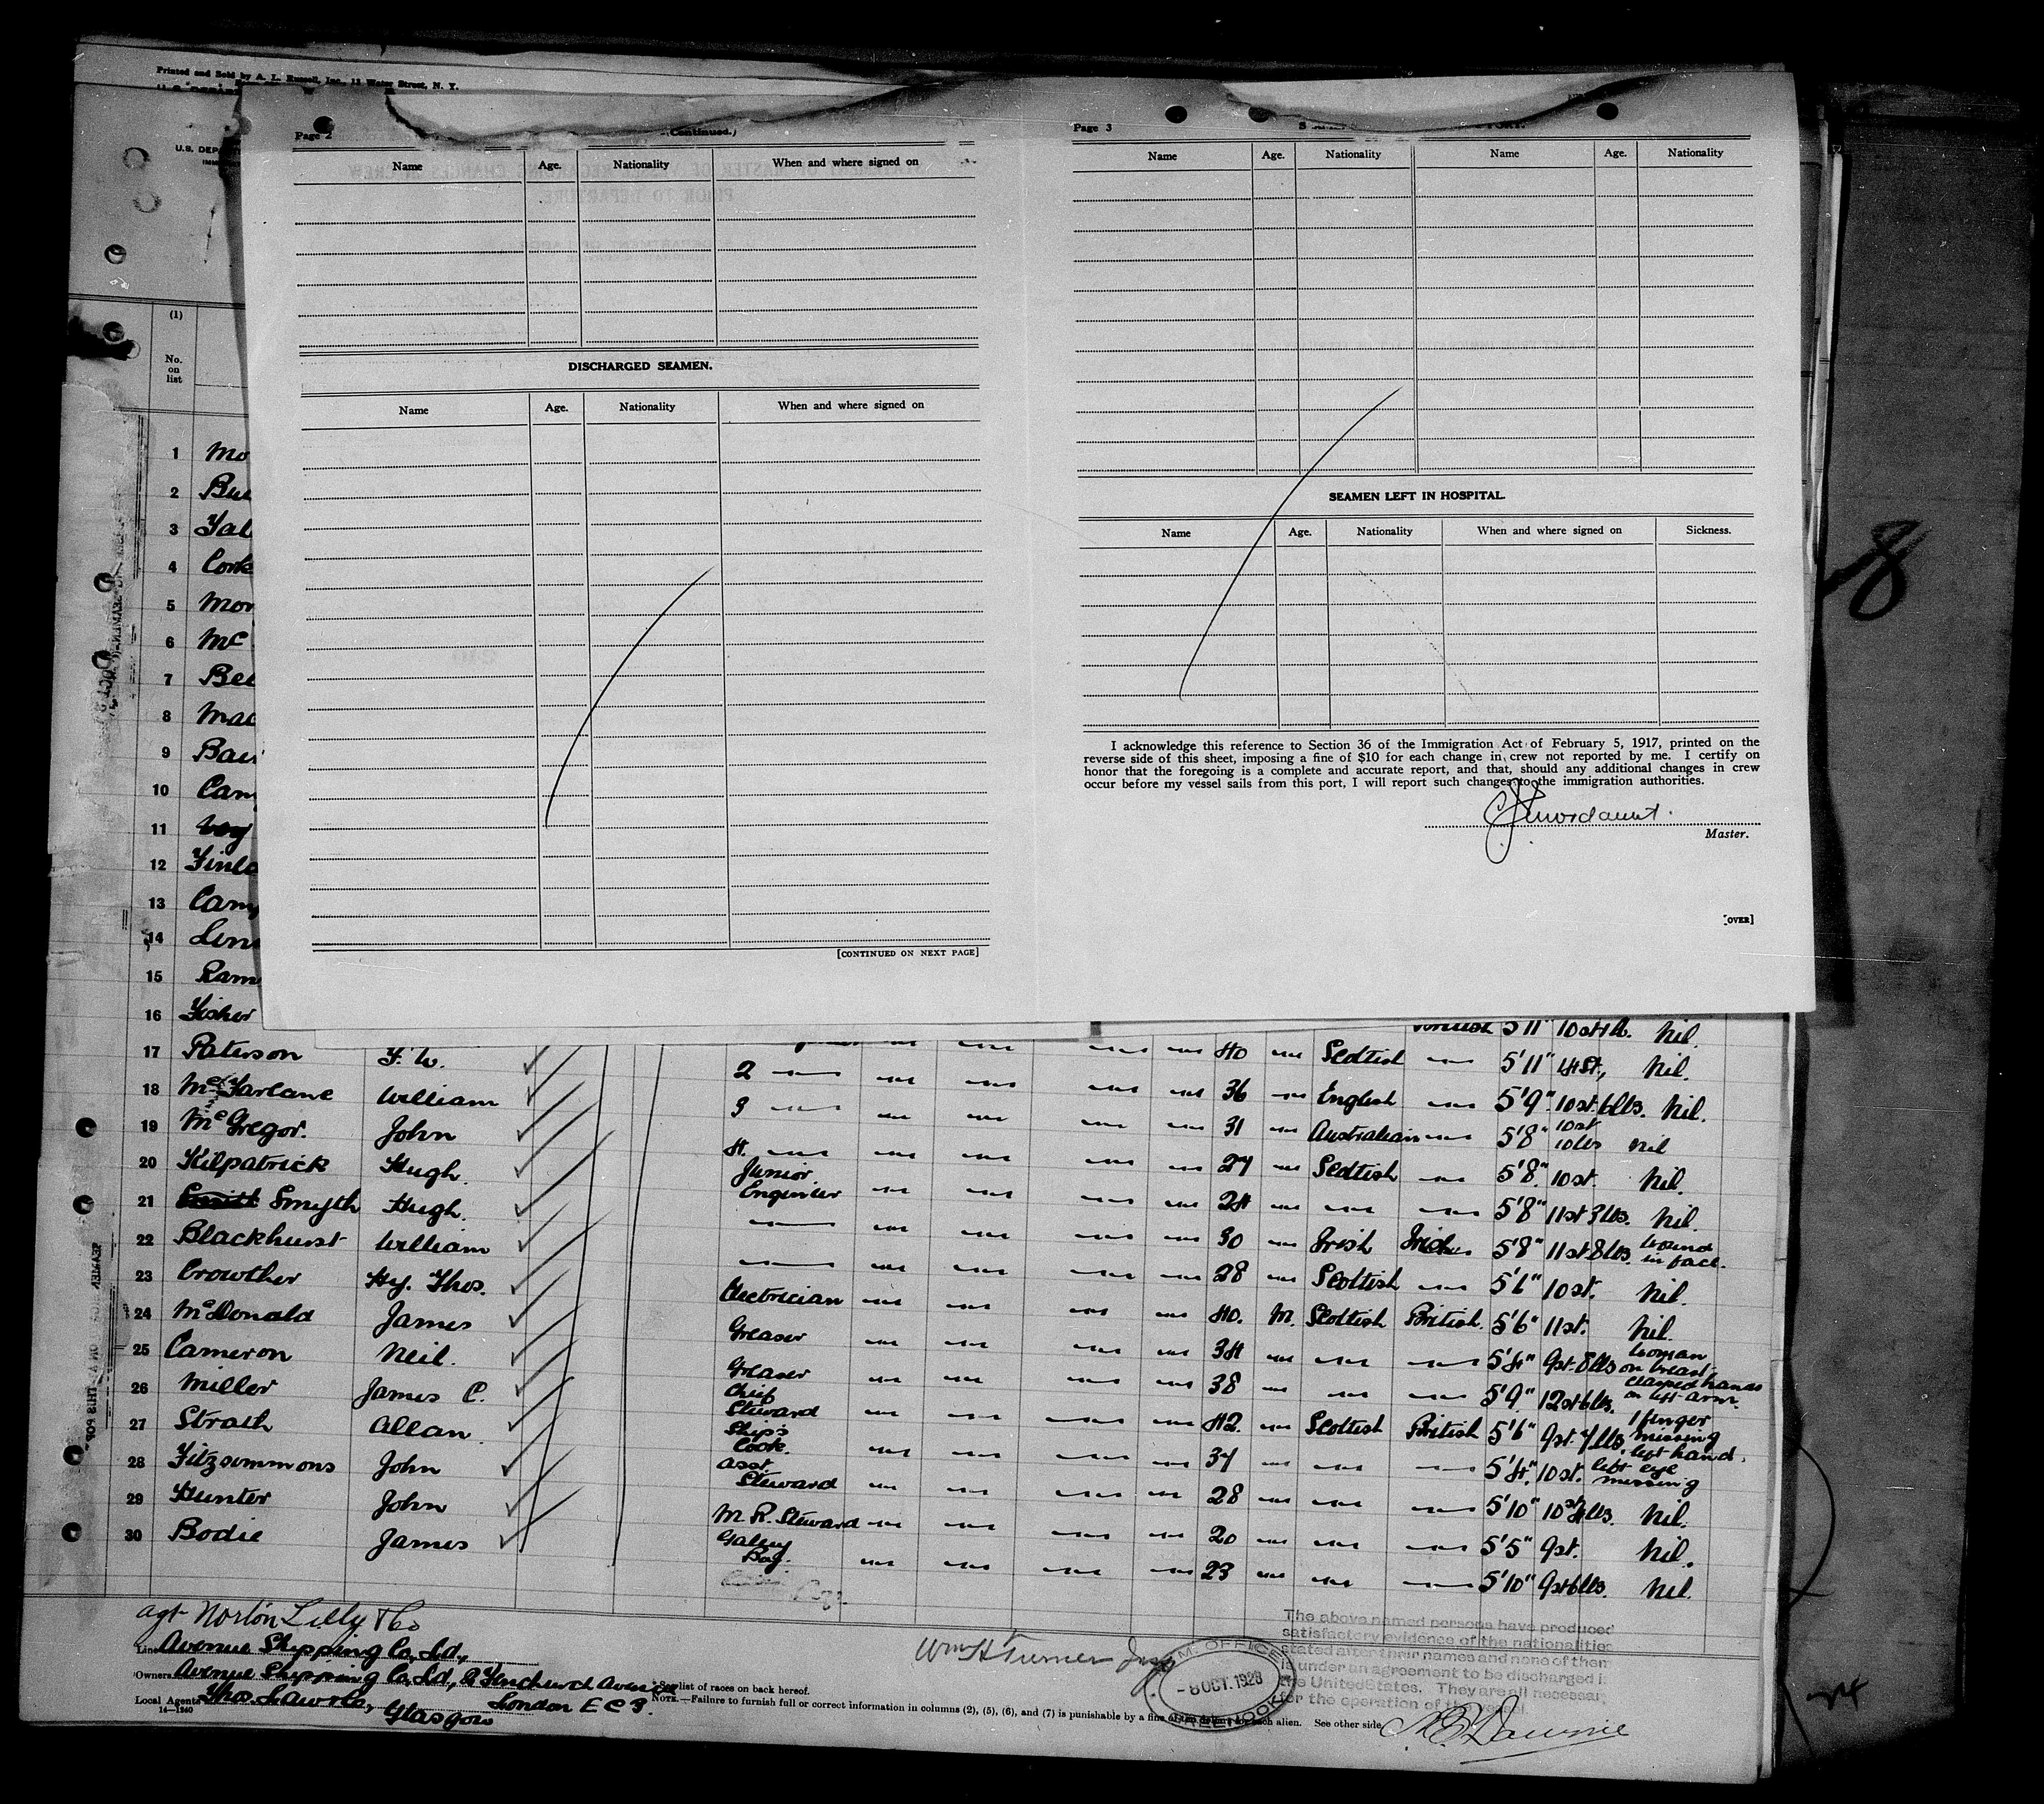 Printed and Sold by A. L. Russell, Inc., 11 Water Street, N. Y.
U. S. DEPA
Page 2
(Continued.)
Name Age. Nationality When and where signed on
DISCHARGED SEAMEN.
Name Age. Nationality When and where signed on
[CONTINUED ON NEXT PAGE]
Page 3
Name Age. Nationality Name Age. Nationality
SEAMEN LEFT IN HOSPITAL.
Name Age. Nationality When and where signed on Sickness.
I acknowledge this reference to Section 36 of the Immigration Act of February 5, 1917, printed on the
reverse side of this sheet, imposing a fine of $10 for each change in crew not reported by me. I certify on
honor that the foregoing is a complete and accurate report, and that, should any additional changes in crew
occur before my vessel sails from this port, I will report such changes to the immigration authorities.
Master.
[OVER]
8
(1)
No.
on
list
1 Mo
2 Bu
3 Yal
4 Cork
5 Mor
6 Mc
7 Bee
8 Mac
9 Bai
10 Cam
11
12 Finla
13 Cam
14 Len
15 Ram
16 Fisher British 5'11" 10st 1lb. Nil.
17 Paterson F. W. 40 Scottish 5'11" 14st, Nil.
18 McFarlane William 2 36 English 5'9" 10st. 6lbs. Nil.
19 McGregor. John 3 31 Australian 5'8" 10st 10lbs Nil
20 Kilpatrick Hugh. 4. 27 Scottish 5'8". 10st. Nil.
21 Smyth Hugh. Junior Engineer 24 5'8" 11st 3lbs. Nil.
22 Blackhurst William 30 Irish Irish 5'8" 11st 8lbs. Wound in face.
23 Crowther Hy. Thos. 28 Scottish 5'6" 10st. Nil.
24 McDonald James Electrician 40. M. Scottish British. 5'6" 11st. Nil.
25 Cameron Neil. Greaser 34 5'4" 9st. 8lbs Woman on breast
26 Miller James C. Greaser 38 5'9" 12st 6lbs. clasped hands on left arm.
27 Strath Allan. Chief Steward 42. Scottish British 5'6" 9st. 7lbs. 1 finger missing left hand.
28 Fitzsimmons John Ships Cook. 37 5'4". 10st. left eye missing
29 Hunter John asst. Steward 28 5'10" 10st 4lbs. Nil.
30 Bodie James M. R. Steward 20 5'5" 9st. Nil.
Galley Boy. 23 5'10" 9st 6lbs. Nil.
agt Norton Lilly & Co
Line Avenue Shipping Co, Ld.,
Owners Avenue Shipping Co, Ld., 2 Fenchurch Avenue
London E C 3.
Local Agents Thos. Law & Co, Glasgow
14—1240
See list of races on back hereof.
NOTE.—Failure to furnish full or correct information in columns (2), (5), (6), and (7) is punishable by a fine of ten dollars for each alien. See other side
Wm H Turner Insp
IMM. OFFICE
- 8 OCT. 1928
GREENOCK
The above named persons have produced
satisfactory evidence of the nationalities
stated after their names and none of them
is under an agreement to be discharged i
the United States. They are all necessary
for the operation of the vessel.